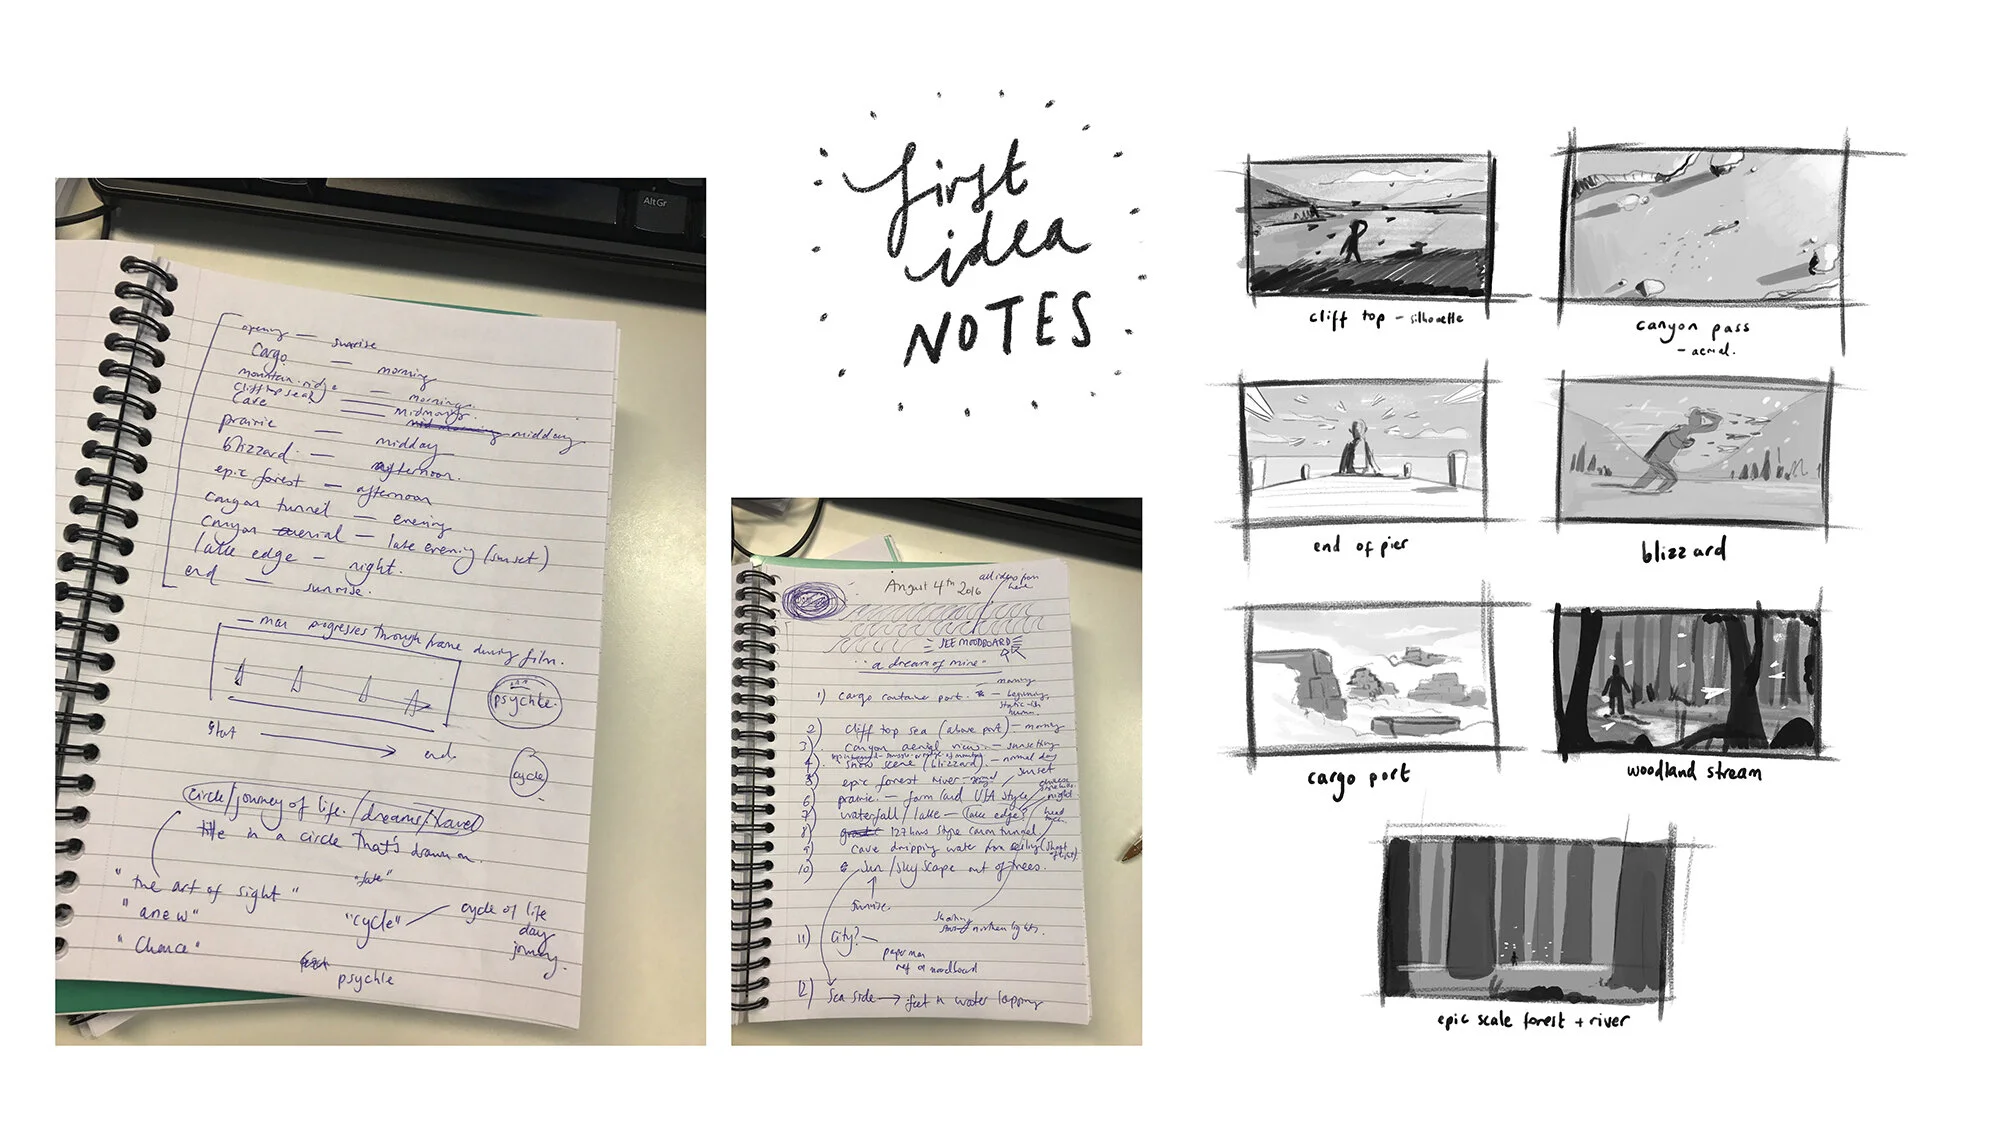 AltGr
opening — sunrise
Cargo — morning
mountain ridge — morning
Cliff top sea — midmorning
Cave — mid morning midday
prairie — midday
blizzard — afternoon
epic forest — afternoon
canyon tunnel — evening
canyon aerial — late evening (sunset)
lake edge — night.
end — sunrise.
— man progresses through frame during film.
psychle.
start → end
cycle
circle/journey of life/dreams/travel
title in a circle that's drawn on.
"the art of sight"
"anew" "cycle" — cycle of life
"Chance" day
journey.
psychle
first
idea
NOTES
August 4th 2016
all ideas from here
SEE MOODBOARD
"a dream of mine"
1) cargo container port. — beginning,
morning
static
human
2) cliff top sea (above port) — morning
3) canyon aerial view — sunsetting
4) snow scene (blizzard) — normal day
5) epic forest River
sunset
6) prairie. — farm land USA style
night
7) waterfall/lake — (lake edge?)
8) 127 hours style canyon tunnel.
9) cave dripping water from ceiling
10) sun/skyscape out of trees.
sunrise.
northern lights.
11) City? —
paper man
ref on moodboard
12) Sea side → feet in water lapping
cliff top - silhouette
canyon pass
- aerial.
end of pier
blizzard
cargo port
woodland stream
epic scale forest + river